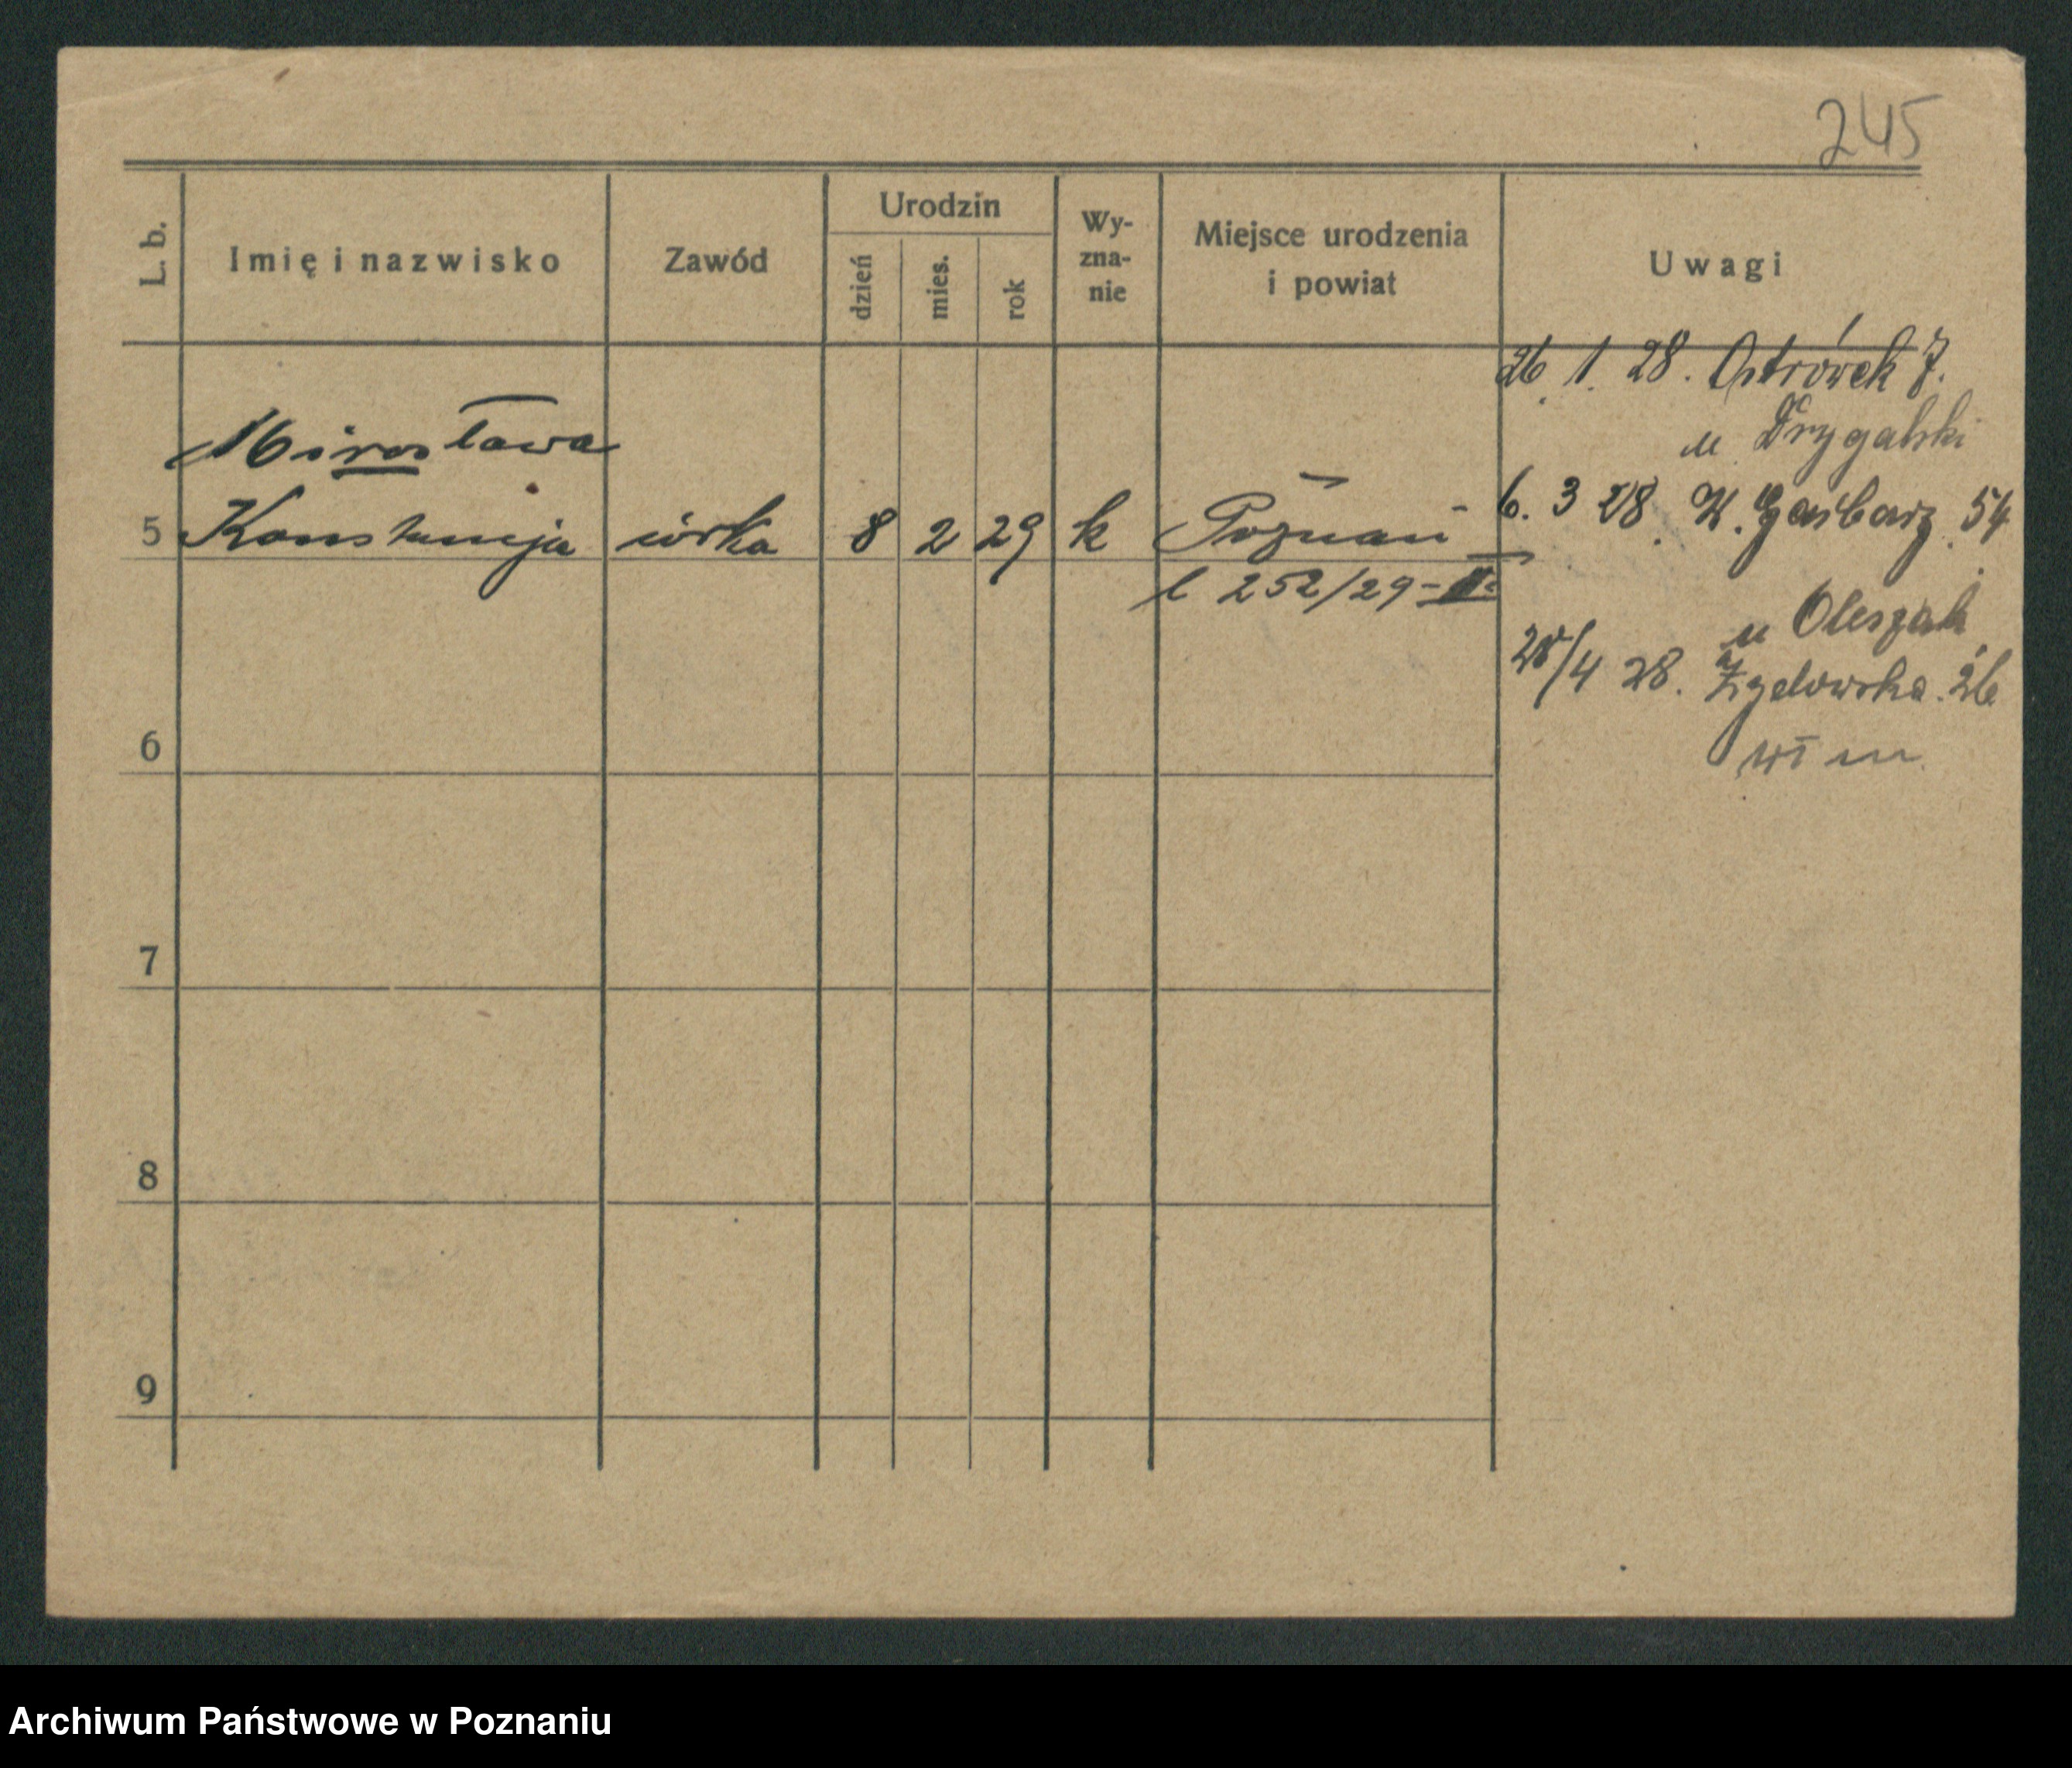 245
L. b.
Imię i nazwisko
Zawód
Urodzin
dzień
mies.
rok
Wy-
zna-
nie
Miejsce urodzenia
i powiat
Uwagi
26. 1. 28. Ostrówek 7.
u Drygalski
Mirosława
5 Konstancja córka 8 2 29 k Poznań
6. 3 28. W. Garbary 54
l 252/29-II.
u Oleszak
4 28. Żydowska. 26
6
7
8
9
Archiwum Państwowe w Poznaniu